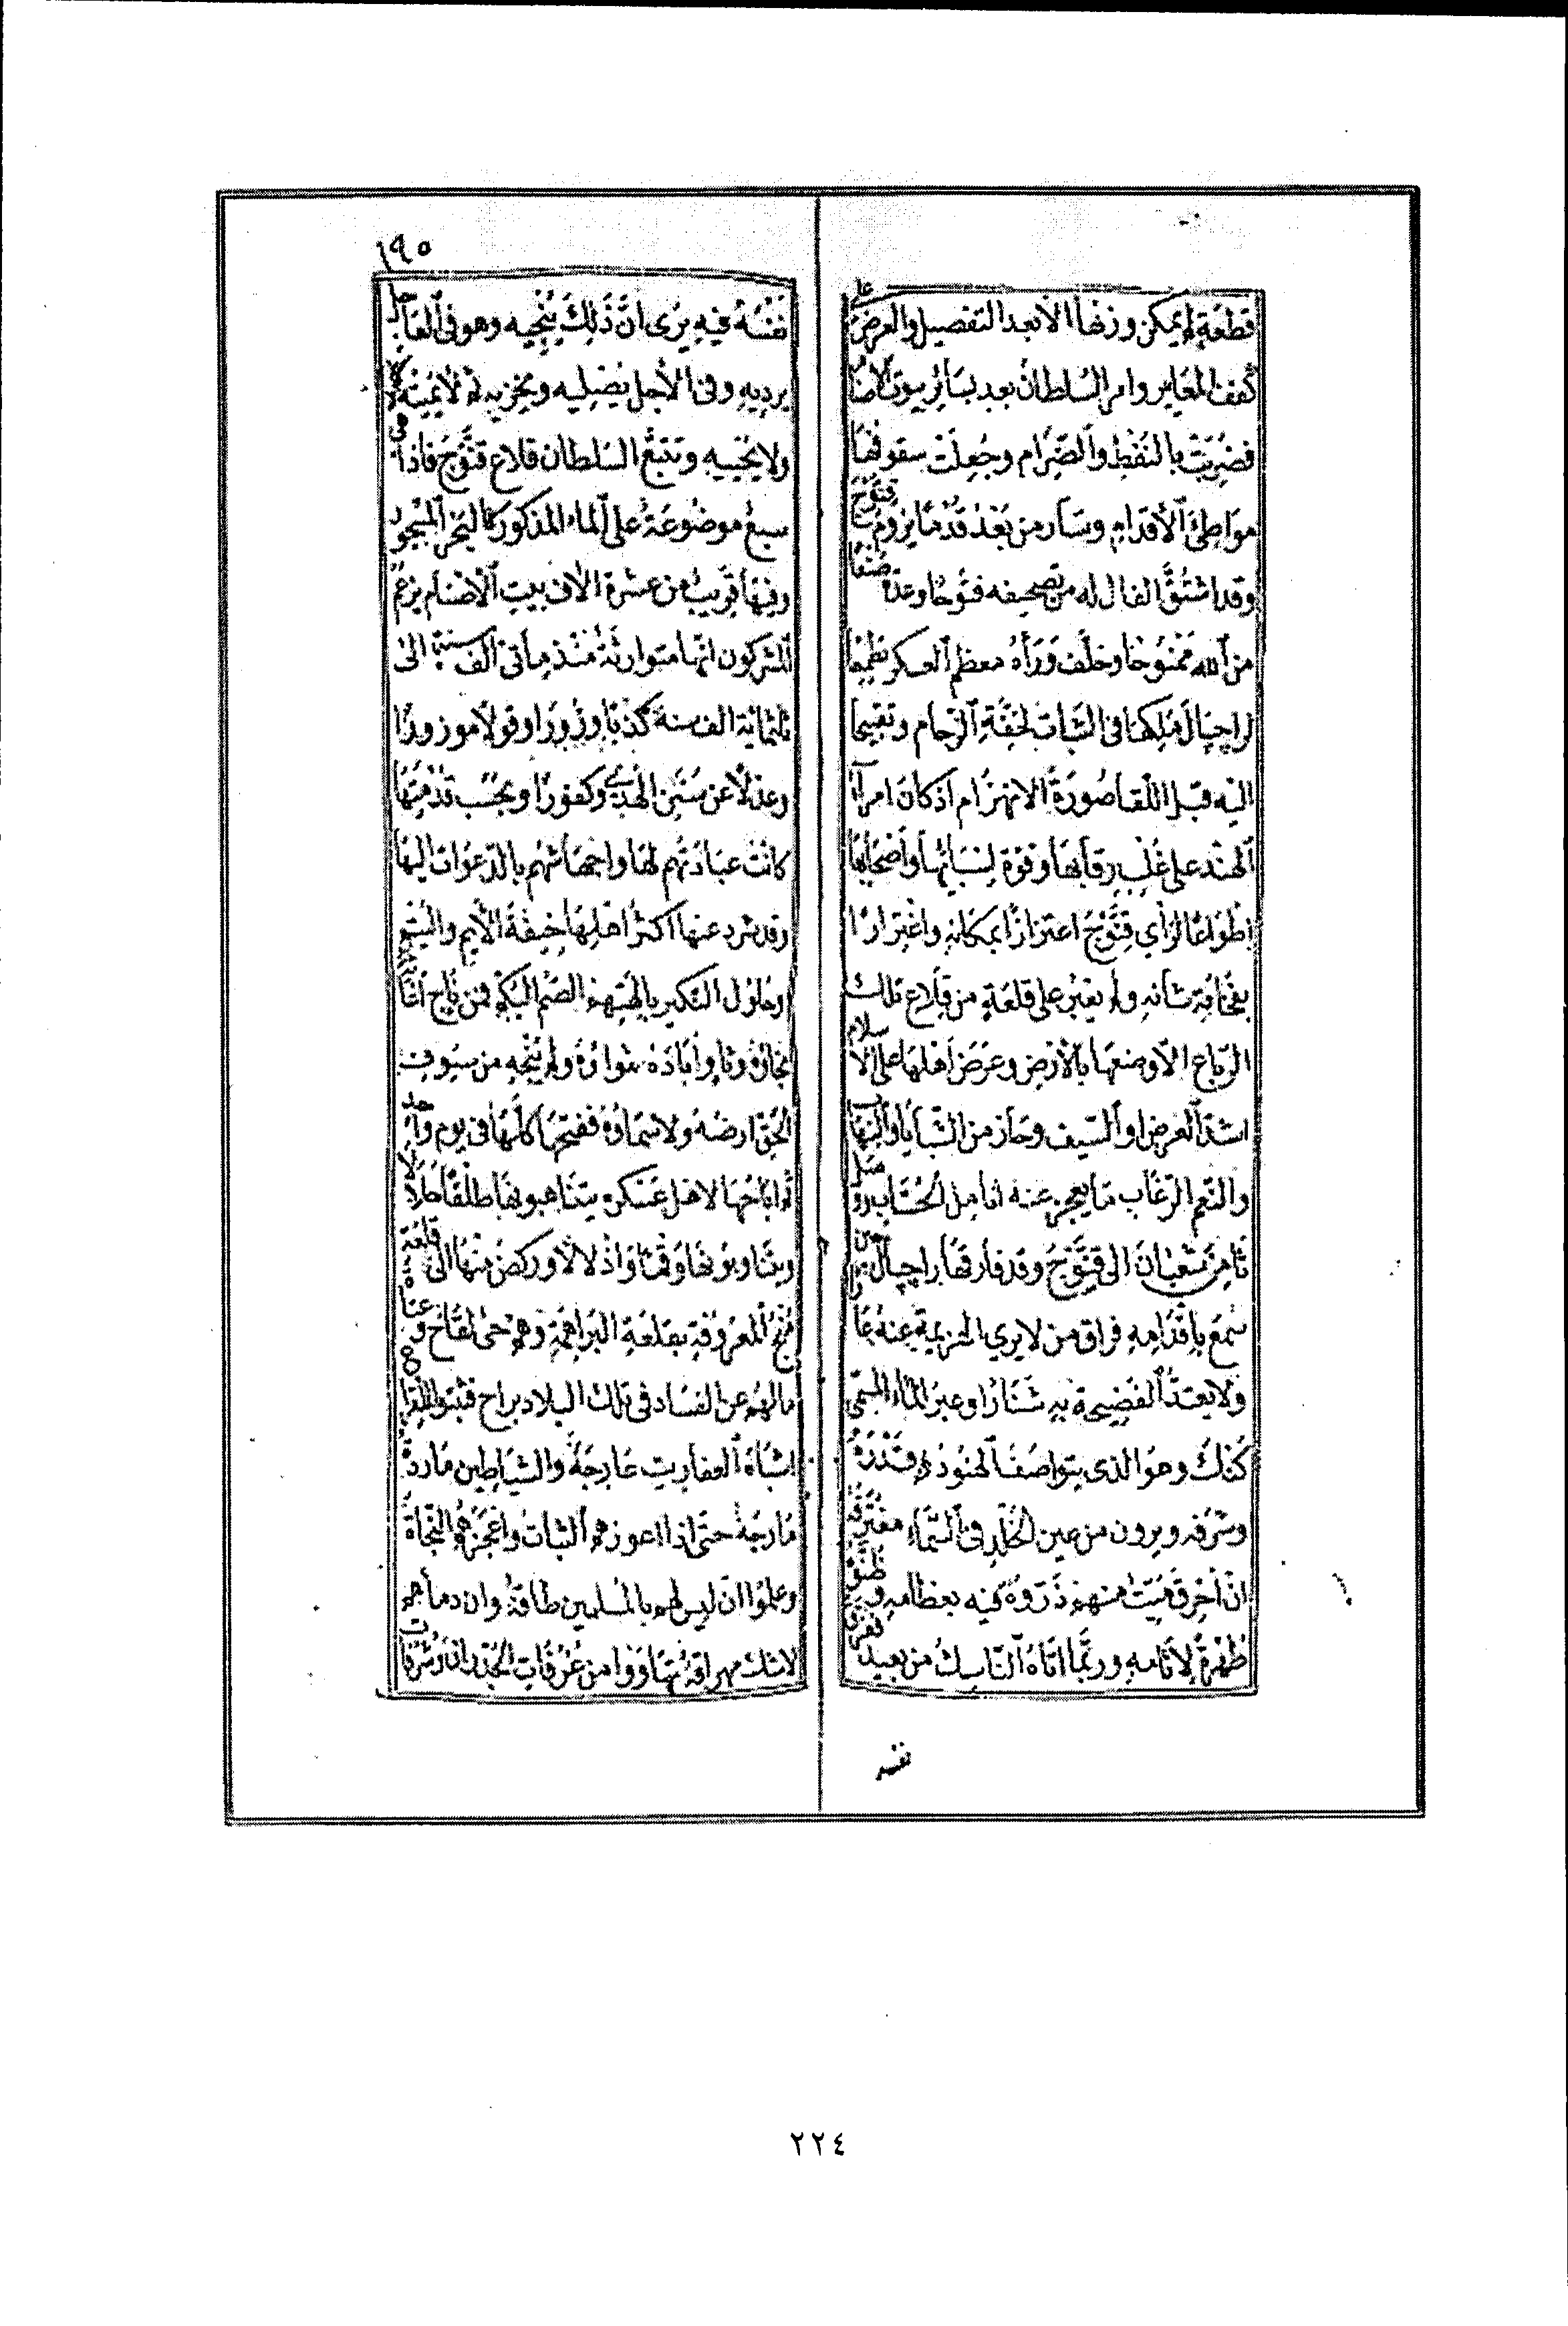 قطعة لم يمكن وزنها الا بعد التفصيل والعرض على
كفف المعايير وامر السلطان بعد بسائر بيوت الاصنام
فضربت بالنفط والضرام وجعلت سقوفها
مواطئ الاقدام وسار من بعد قدما يروم قنوج
وقد اشتق الفال له من تصحيفه فتوحا وعد صنعا
من الله ممنوحا وخلف وراه معظم العسكر تطميعا
لراجيال ملكها في الثبات لخفة الزحام وتقبيحا
اليه قبل اللقا صورة الانهزام اذ كان امرآ
الهند على غلب رقابها وقوة
اطواعا لراي قنوج اعتزازا بمكانه واغترارا
بفخامة شانه ولم يعبر على قلعة من قلاع تلك
الرباع الا وضعها بالارض وعرض اهلها على الاسلام
اشد العرض او السيف وحاز من السبايا والنهاب
والنعم الرغاب ما يعجز عنه انامل الحساب
ثامن شعبان الى قنوج وقد فارقها راجيال حين
سمع باقدامه فراق من لا يرى الهزيمة عنه عارا
ولا يعتد الفضيحة به شنارا وعبر الماء المسمى
كنك وهو الذي يتواصف الهنود قدره
وشرفه ويرون من عين الخلد في السماء مغترفه
ان احرق ميت منهم ذروه فيه بعظامه وظنوه
ظهرة لاثامه وربما اتاه الناسك من بعيد فغرق
نفسه
١٩٥
نفسه فيه يرى ان ذلك ينجيه وهو في العاجل
يرديه وفي الاجل يضليه ويخزيه ثم لا يميته
ولا يحييه وتتبع السلطان قلاع قنوج فاذا هي
سبع موضوعة على الماء المذكور كالبحر المسجور
وفيها قريب من عشرة الاف بيت الاصنام يزعم
المشركون انها متوارثة منذ مأتى الف سنة الى
ثلثمائة الف سنة كذبا وزورا وقولا موزورا
وعدلا عن سنن الهدى وكفورا وبحسب قدمها
كانت عبادتهم لها واجهاشهم بالدعوات اليها
وقد شرد عنها اكثر اهلها خيفة الايم واليتم
وحلول النكير بالهتهم الصم البكم فمن ناج
نجاؤه وثاو اباده ثواؤه ولم ينجه من سيوف
الحق ارضه ولا سماؤه ففتحها كلها في يوم واحد
ثم اباحها لاهل عسكره يتناهبونها طلقا حلالا
ويتناوبونها وقما واذلالا وركض منها الى قلعة
منج المعروفة بقلعة البراهمة وهم حى لقاح و
ما لهم عن الفساد في تلك البلاد براح فثبتوا للقراع
اشباه العفاريت عارجة والشياطين ماردة
مارجة حتى اذا اعوزهم الثبات واعجزهم النجاة
وعلموا ان ليس لهم بالمسلمين طاقة وان دماهم
لاشك مهراقة تهاووا من غرفات الجدران
٢٢٤